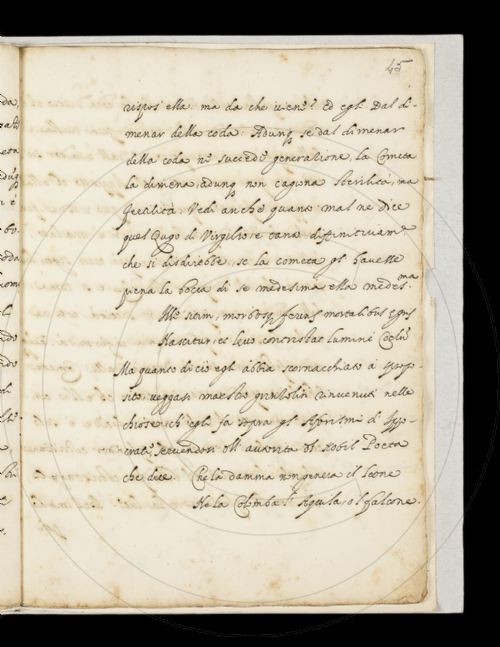 45
rispos' ella ma da che vien? Ed egli Dal di-
menar della coda. Adunq; se dal dimenar
della coda ne succede generatione, la Cometa
la dimena, adunq; non cagiona sterilità, ma
fertilità. Vedi anche quanto mal ne dice
quel di Virgilio, e tanto
che si disdirebbe, se la cometa gl' havesse
piena la bocca di se medesima ella medes.ma
Ille sitim, morbosq; ferens mortalibus egris
Nascitur, et levo contristat lumine Coelu
Ma quanto di ciò egli abbia scornacchiato à
sito, veggasi maestro nelle
chiose ch' egli fa sopra gl' Aforismi d' Ippo-
crate, servendosi dell' autorità del nobil Poeta
che dice Che la damma non genera il leone
Ne la Colomba l' Aquila, o l falcone.